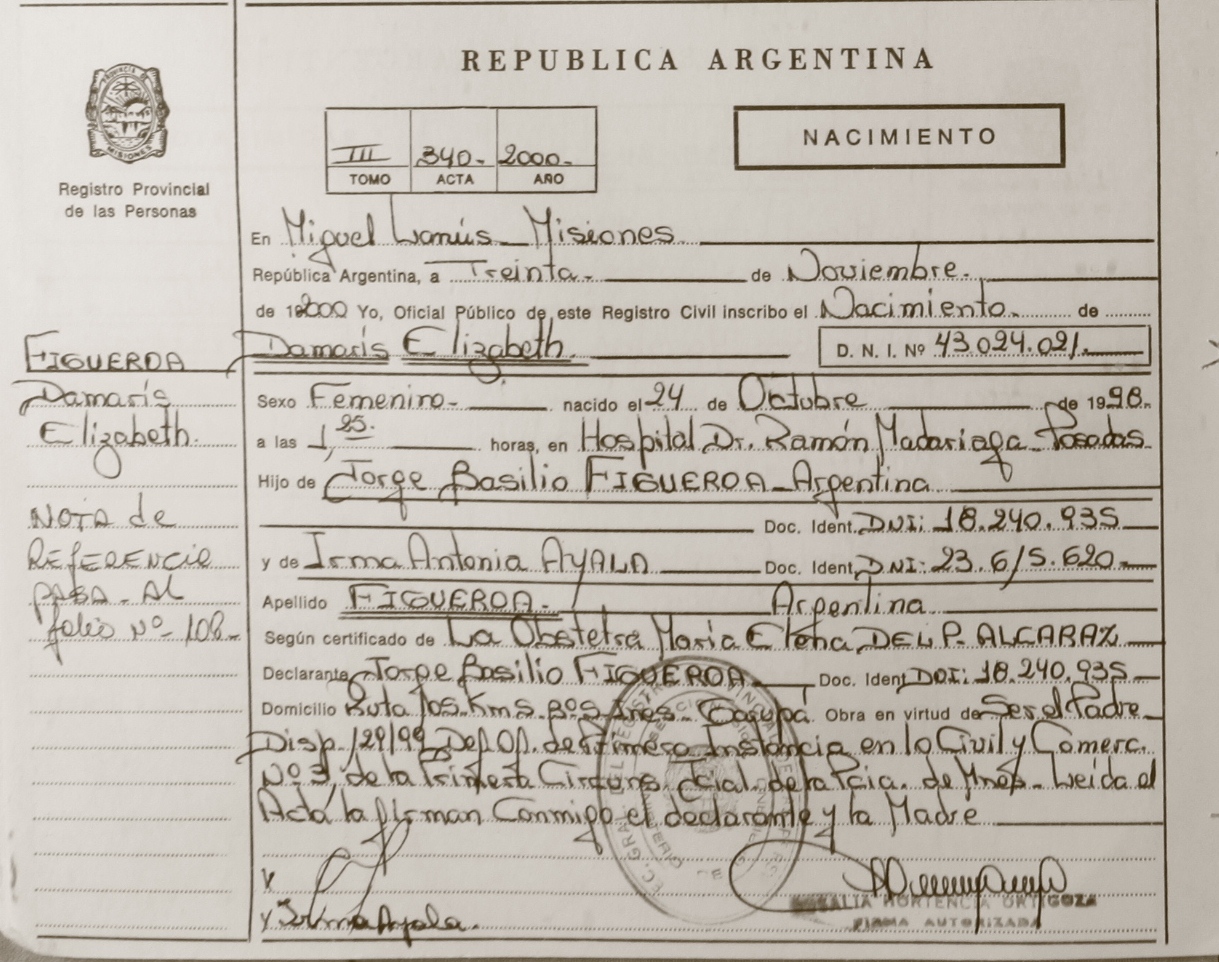 REPUBLICA ARGENTINA
PROVINCIA DE
MISIONES
Registro Provincial
de las Personas
NACIMIENTO
III 340- 2000-
TOMO ACTA AÑO
En Miguel Lanús- Misiones
República Argentina, a Treinta- de Noviembre-
de 2000 Yo, Oficial Público de este Registro Civil inscribo el Nacimiento- de
Damaris Elizabeth. D. N. I. Nº 43.024.021-
Sexo Femenino- nacido el 24 de Octubre de 1998-
a las 1,25. horas, en Hospital Dr. Ramón Madariaga Posadas
Hijo de Jorge Basilio FIGUEROA- Argentina
Doc. Ident. DNI: 18.240.935
y de Irma Antonia AYALA Doc. Ident. DNI: 23.615.620-
Apellido FIGUEROA- Argentina
Según certificado de La Obstetra María Elena DEL P. ALCARAZ
Declarante Jorge Basilio FIGUEROA- Doc. Ident. DOI: 18.240.935
Domicilio Ruta 105 Kms. Obra en virtud de Ser el Padre
Disp. 129/99 Def. Of. de Primera Instancia en lo Civil y Comerc.
Nº 3, de la Primera Circuns. Jcial. de la Pcia. de Mnes- Leída el
Acta la firman Conmigo el declarante y la Madre
FIGUEROA
Damaris
Elizabeth.
NOTA de
REFERENCIA
PASA- AL
folio Nº- 108-
y Irma Ayala.
ROSALIA HORTENCIA ORTIGOZA
FIRMA AUTORIZADA